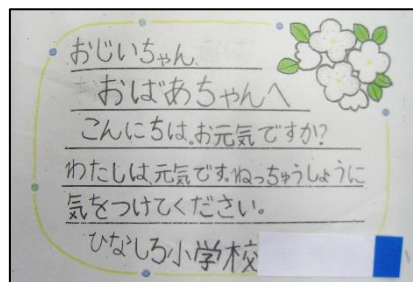 おじいちゃん、
おばあちゃんへ
こんにちは。お元気ですか？
わたしは、元気です。ねっちゅうしょうに
気をつけてください。
ひなしろ小学校